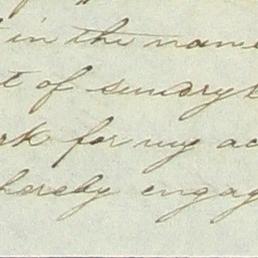 in the name
t of sundry
rk for my ac
hereby engag